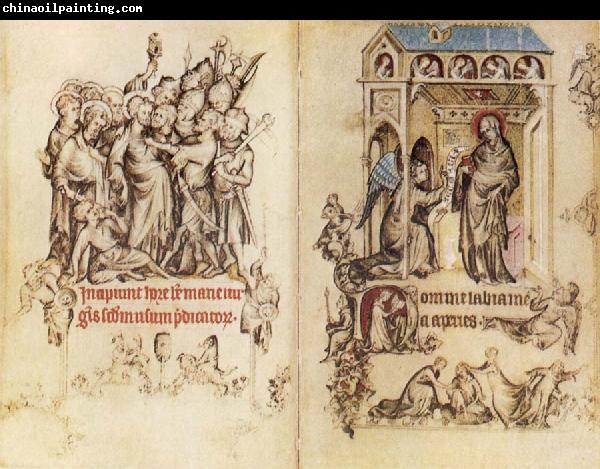 chinaoilpainting.com
Incipiunt hore b͞e marie uir
gis scd͞m usum p͞dicatoꝝ.
Domine labia me
a aperies.